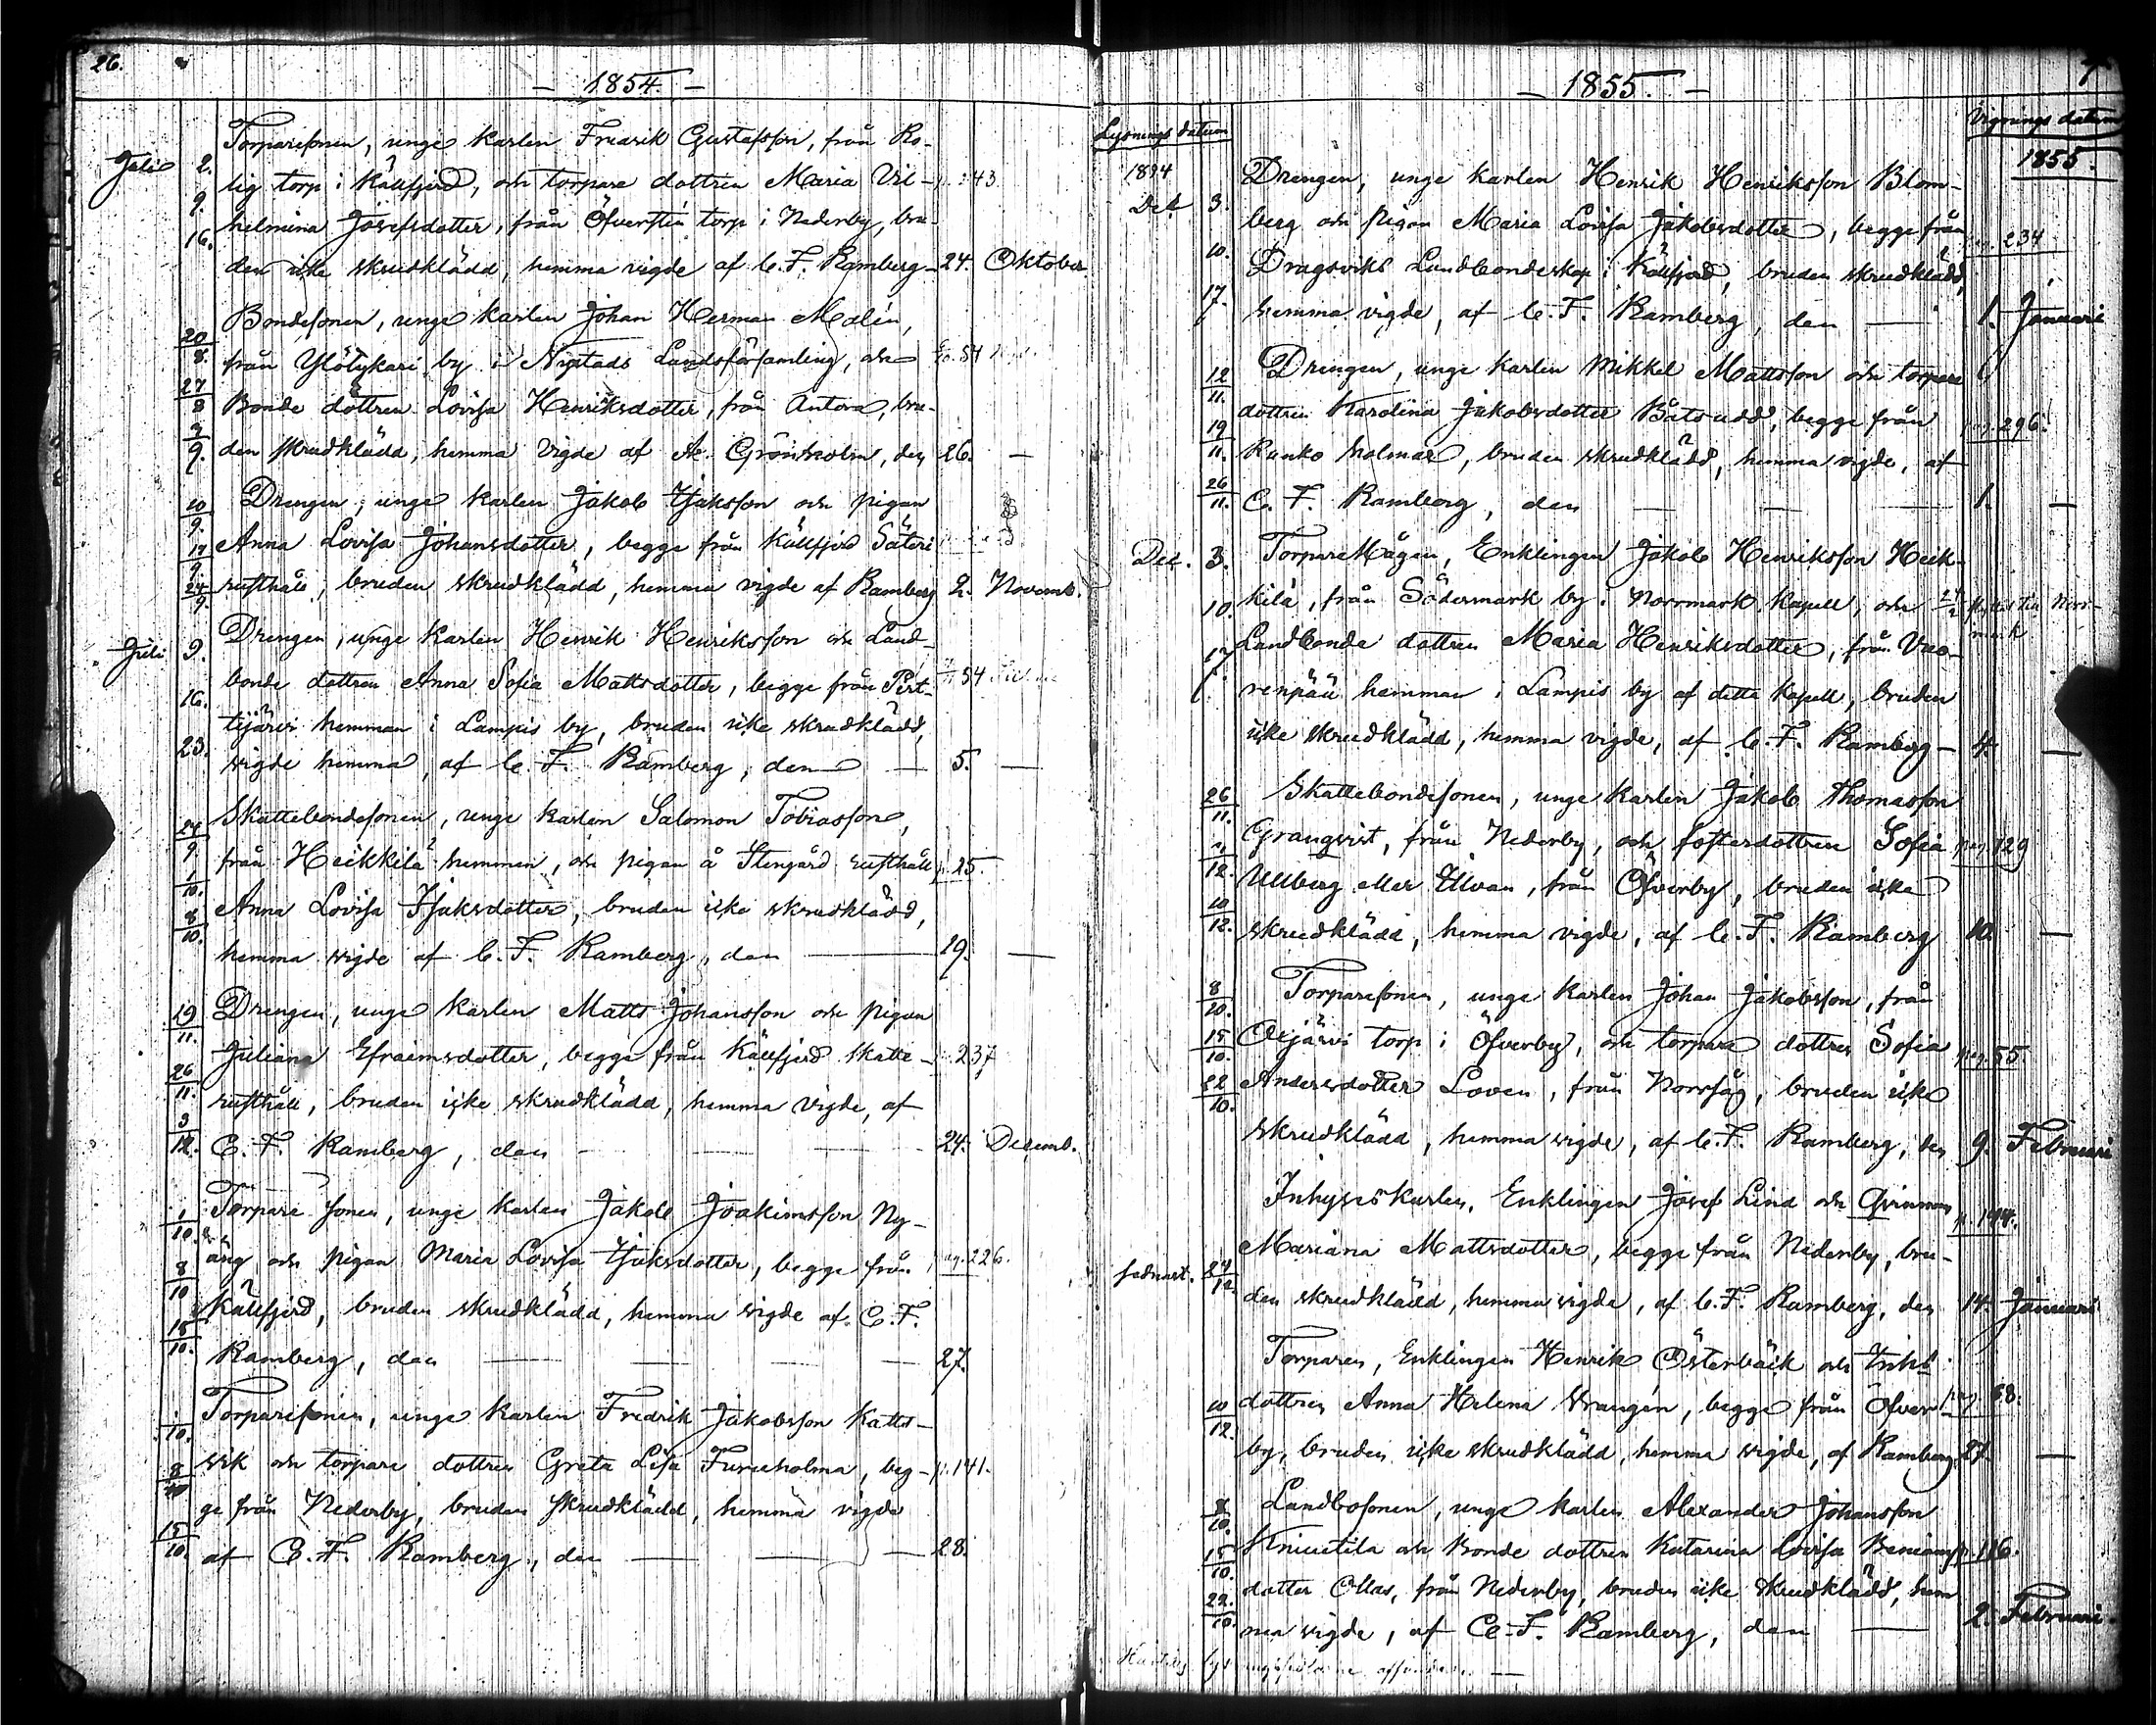 26.
1854.
Torparesonen, unge karlen Fredrik Gustafsson, från Ro-
Juli 2. lig torp i Källfjerd, och torpare dottren Maria Vil- 43
9. helmina Josefsdotter, från torp i Nederby, bru-
16. den icke skrudklädd, hemma vigde af C. F. Ramberg 24. Oktober
Bondesonen, unge karlen Johan Herman Malin,
20/8. från by i Nystads Landsförsamling, och 54
27/8 Bonde dottren Lovisa Henriksdotter, från Antora, bru-
3/9. den skrudklädd, hemma vigde af Grönholm, den 26. —
10/9. Drengen, unge karlen Jakob Isaksson och pigan
17/9 Anna Lovisa Johansdotter, begge från Källfjerd Säteri
24/9. rusthåll, bruden skrudklädd, hemma vigde af Ramberg 2. Novemb.
Juli 9. Drengen, unge karlen Henrik Henriksson och Land-
16. bonde dottren Anna Sofia Mattsdotter, begge från Pert- 54
tijärvi hemman i Lampis by, bruden icke skrudklädd,
23. vigde hemma, af C. F. Ramberg, den — 5. —
Skattebondesonen, unge karlen Salomon Tobiasson,
24/9 från Heikkilä hemman, och pigan å Stengård rusthåll p. 25.
1/10. Anna Lovisa Isaksdotter, bruden icke skrudklädd,
8/10. hemma vigde af C. F. Ramberg, den — 19. —
19/11. Drengen, unge karlen Matts Johansson och pigan
Juliana Efraimsdotter, begge från Källfjerd Skatte- 237
26/11. rusthåll, bruden icke skrudklädd, hemma vigde, af
3/12. C. F. Ramberg, den — 24. Decemb.
1/10. Torpare sonen, unge karlen Jakob Joakimsson Ny-
8/10 äng och pigan Maria Lovisa Isaksdotter, begge från pag. 226.
Källfjerd, bruden skrudklädd, hemma vigde af C. F.
15/10. Ramberg, den — — — 27.
1/10. Torparesonen, unge karlen Fredrik Jakobsson Katts-
8/10 vik och torpare dottren Greta Lisa Furuholma, beg- p. 141.
ge från Nederby, bruden skrudklädd, hemma vigde
15/10. af C. F. Ramberg, den — — 28.
1855.
Lysnings datum Vignings datum
1854 1855.
Dec 3. Drengen, unge karlen Henrik Henriksson Blom-
berg och pigan Maria Lovisa Jakobsdotter, begge från 234
10. Dragsviks Landbondeskap i Källfjerd, bruden skrudklädd,
17. hemma vigde, af C. F. Ramberg, den — 1. Januari
12/11. Drengen, unge karlen Mikkel Mattsson och torpare
19/11. dottren Karolina Jakobsdotter Båtsudd, begge från pag. 296.
Runko holmar, bruden skrudklädd, hemma vigde, af
26/11. C. F. Ramberg, den — — — 1. —
Dec. 3. TorpareMågen, Enklingen Jakob Henriksson Heik-
10. kilä, från Södermark by i Norrmark Kapell, och flyttat till Norr-
mark
17 Landbonde dottren Maria Henriksdotter, från Vuo-
renpää hemman i Lampis by af detta Kapell, bruden
icke skrudklädd, hemma vigde, af C. F. Ramberg — 4. —
26/11. Skattebondesonen, unge karlen Jakob Thomasson
Granqvist, från Nederby, och fosterdottren Sofia pag. 129
12. Ullberg eller , från Öfverby, bruden icke
10/12. skrudklädd, hemma vigde, af C. F. Ramberg 10. —
8/10. Torparesonen, unge karlen Johan Jakobsson, från
15/10. Oxjärvi torp i Öfverby, och torpare dottren Sofia pag. 55
22/10. Andersdotter Loven, från Norrsåg, bruden icke
skrudklädd, hemma vigde, af C. F. Ramberg, den 9. Februari
Inhyseskarlen, Enklingen Josef Lind och Qvinnan p. 144.
Mariana Mattsdotter, begge från Nederby, bru-
24/12. den skrudklädd, hemma vigde, af C. F. Ramberg, den 14. Januari
Torparen, Enklingen Henrik Österbäck och Inhs
10/12. dottren Anna Helena Wrangén, begge från Öfver pag. 68.
by, bruden icke skrudklädd, hemma vigde, af Ramberg 27. —
8/10. Landbosonen, unge karlen Alexander Johansson
15/10. Knuutila och Bonde dottren Katarina Lovisa Beniams p. 116.
22./10. dotter Ollas, från Nederby, bruden icke skrudklädd, hem
ma vigde, af C. F. Ramberg, den — 2. Februari.